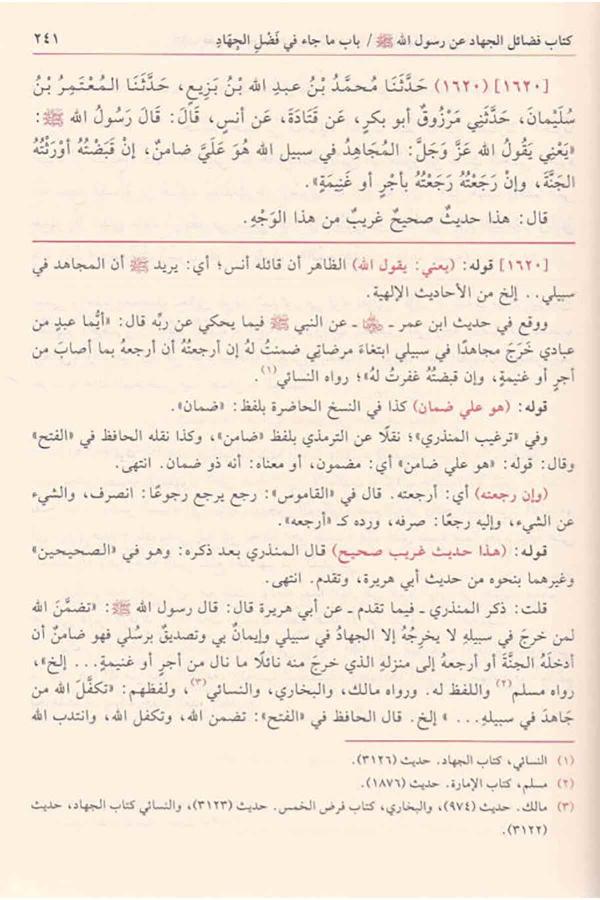 كتاب فضائل الجهاد عن رسول الله ﷺ / باب ما جاء في فَضْلِ الجِهَادِ ٢٤١
[١٦٢٠] (١٦٢٠) حَدَّثَنَا مُحمَّدُ بْنُ عبدِ الله بْنُ بَزِيعٍ، حَدَّثَنَا المُعْتَمِرُ بْنُ
سُلَيْمانَ، حَدَّثَنِي مَرْزُوقٌ أبو بكرٍ، عَن قَتَادَةَ، عَن أنسٍ، قَالَ: قَالَ رَسُولُ الله ﷺ:
«يَعْنِي يَقُولُ الله عَزَّ وَجَلَّ: المُجَاهِدُ في سبيلِ الله هُوَ عَلَيَّ ضامنٌ، إنْ قَبَضْتُهُ أوْرَثْتُهُ
الجَنَّةَ، وإنْ رَجَعْتُهُ رَجَعْتُهُ بأجْرٍ أو غَنِيمَةٍ».
قال: هذا حديثٌ صحيحٌ غريبٌ من هذا الوَجْهِ.
[١٦٢٠] قوله: (يعني: يقول الله) الظاهر أن قائله أنس؛ أي: يريد ﷺ أن المجاهد في
سبيلي.. إلخ من الأحاديث الإلهية.
ووقع في حديث ابن عمر ـ رضي الله عنهما ـ عن النبي ﷺ فيما يحكي عن ربِّه قال: «أيُّما عبدٍ من
عبادي خَرَجَ مجاهدًا في سبيلي ابتغاءَ مرضاتي ضمنتُ لهُ إن أرجعتُهُ أن أرجعهُ بما أصابَ من
أجرٍ أو غنيمةٍ، وإن قبضتُهُ غفرتُ لهُ»؛ رواه النسائي(١).
قوله: (هو علي ضمان) كذا في النسخ الحاضرة بلفظ: «ضمان».
وفي «ترغيب المنذري»؛ نقلًا عن الترمذي بلفظ «ضامن»، وكذا نقله الحافظ في «الفتح»
وقال: قوله: «هو علي ضامن» أي: مضمون، أو معناه: أنه ذو ضمان. انتهى.
(وإن رجعته) أي: أرجعته. قال في «القاموس»: رجع يرجع رجوعًا: انصرف، والشيء
عن الشيء، وإليه رجعًا: صرفه، ورده كـ «أرجعه».
قوله: (هذا حديث غريب صحيح) قال المنذري بعد ذكره: وهو في «الصحيحين»
وغيرهما بنحوه من حديث أبي هريرة، وتقدم. انتهى.
قلت: ذكر المنذري ـ فيما تقدم ـ عن أبي هريرة قال: قال رسول الله ﷺ: «تضمَّنَ الله
لمن خرجَ في سبيلهِ لا يخرِجُهُ إلا الجهادُ في سبيلي وإيمانٌ بي وتصديقٌ برسُلي فهو ضامنٌ أن
أدخلَهُ الجنَّةَ أو أرجعهُ إلى منزلهِ الذي خرجَ منه نائلًا ما نال من أجرٍ أو غنيمةٍ... إلخ»،
رواه مسلم(٢) واللفظ له. ورواه مالك، والبخاري، والنسائي(٣)، ولفظهم: «تكفَّلَ الله من
جَاهدَ في سبيلهِ... » إلخ. قال الحافظ في «الفتح»: تضمن الله، وتكفل الله، وانتدب الله
(١) النسائي، كتاب الجهاد. حديث (٣١٢٦).
(٢) مسلم، كتاب الإمارة. حديث (١٨٧٦).
(٣) مالك. حديث (٩٧٤)، والبخاري، كتاب فرض الخمس. حديث (٣١٢٣)، والنسائي كتاب الجهاد، حديث
(٣١٢٢).